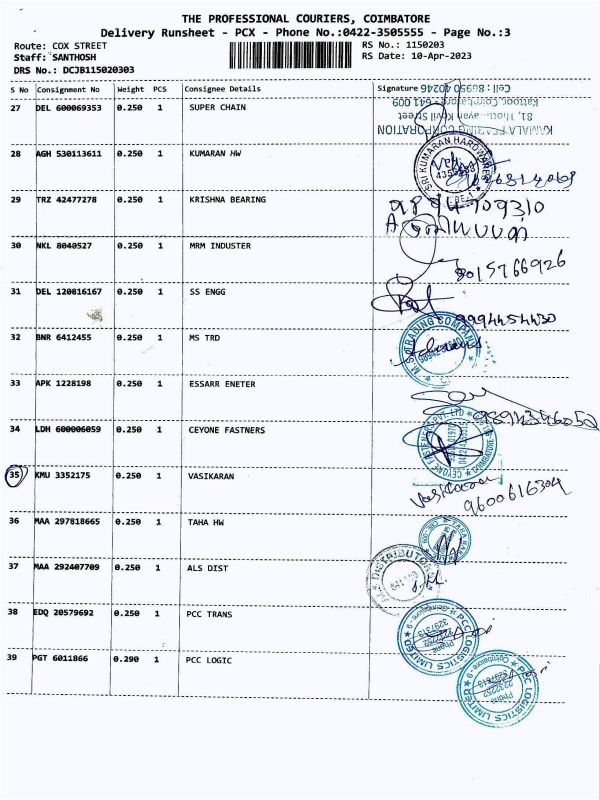 THE PROFESSIONAL COURIERS, COIMBATORE
Delivery Runsheet - PCX - Phone No.:0422-3505555 - Page No.:3
Route: COX STREET
RS No.: 1150203
Staff: SANTHOSH
RS Date: 10-Apr-2023
DRS No.: DCJB115020303
S No Consignment No Weight PCS Consignee Details Signature
Cell : 86950 40246
Kattoor, Coimbatore - 641 009
Kovil Street
CORPORATION
27 DEL 600069353 0.250 1 SUPER CHAIN
28 AGH 530113611 0.250 1 KUMARAN HW
SRI KUMARAN HARDWARES
29 TRZ 42477278 0.250 1 KRISHNA BEARING
9894709310
30 NKL 8040527 0.250 1 MRM INDUSTER
8015766926
31 DEL 120816167 0.250 1 SS ENGG
9994454430
32 BNR 6412455 0.250 1 MS TRD
M.S. TRADING COMPANY
33 APK 1228198 0.250 1 ESSARR ENETER
34 LDH 600006059 0.250 1 CEYONE FASTNERS
35 KMU 3352175 0.250 1 VASIKARAN
Vasikaran
9600616304
36 MAA 297818665 0.250 1 TAHA HW
37 MAA 292407709 0.250 1 ALS DIST
DISTRIBUTORS
38 EDQ 20579692 0.250 1 PCC TRANS
PCC LOGISTICS LIMITED
Phone
39 PGT 6011866 0.290 1 PCC LOGIC
PCC LOGISTICS LIMITED
Phone